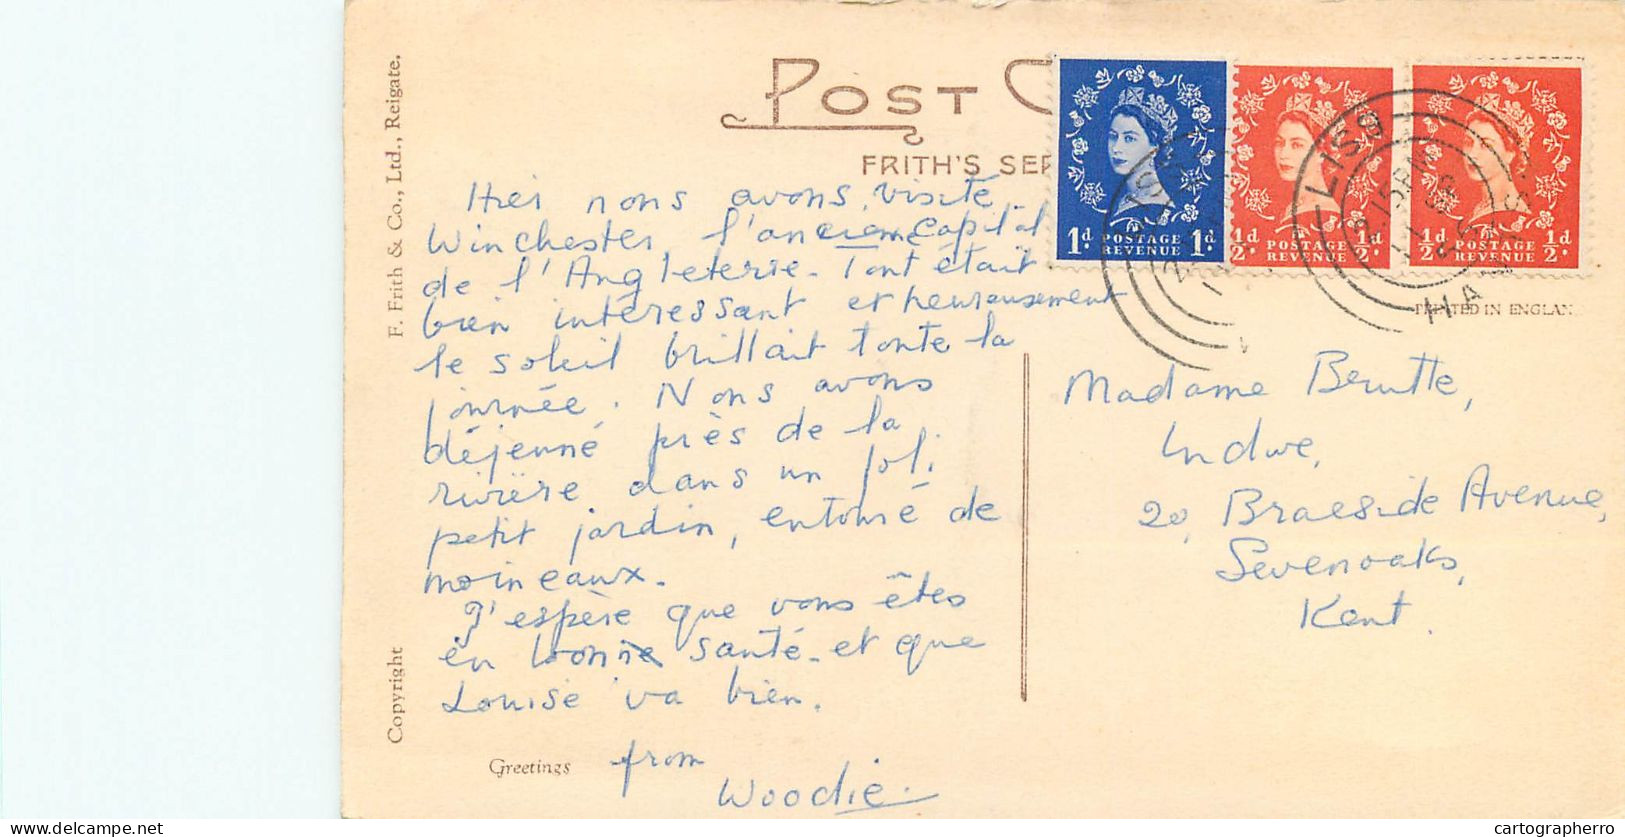 F. Frith & Co., Ltd., Reigate.
Copyright
POST C
FRITH'S SER
1d POSTAGE REVENUE 1d
½d POSTAGE REVENUE ½d
½d POSTAGE REVENUE ½d
LISS
2 15 PM
HANTS
PRINTED IN ENGLAN
Hier nous avons visité
Winchester, l'ancienne Capital
de l'Angleterie. Tout était
bien interessant et heureusement
le soleil brillait toute la
journée. Nous avons
déjeuné près de la
rivière dans un joli
petit jardin, entouré de
moineaux.
J'espère que vous êtes
en bonne santé et que
Louise va bien.
from
Woodie.
Greetings
Madame Brutte,
Indwe,
20, Braeside Avenue,
Sevenoaks,
Kent.
cartographerro